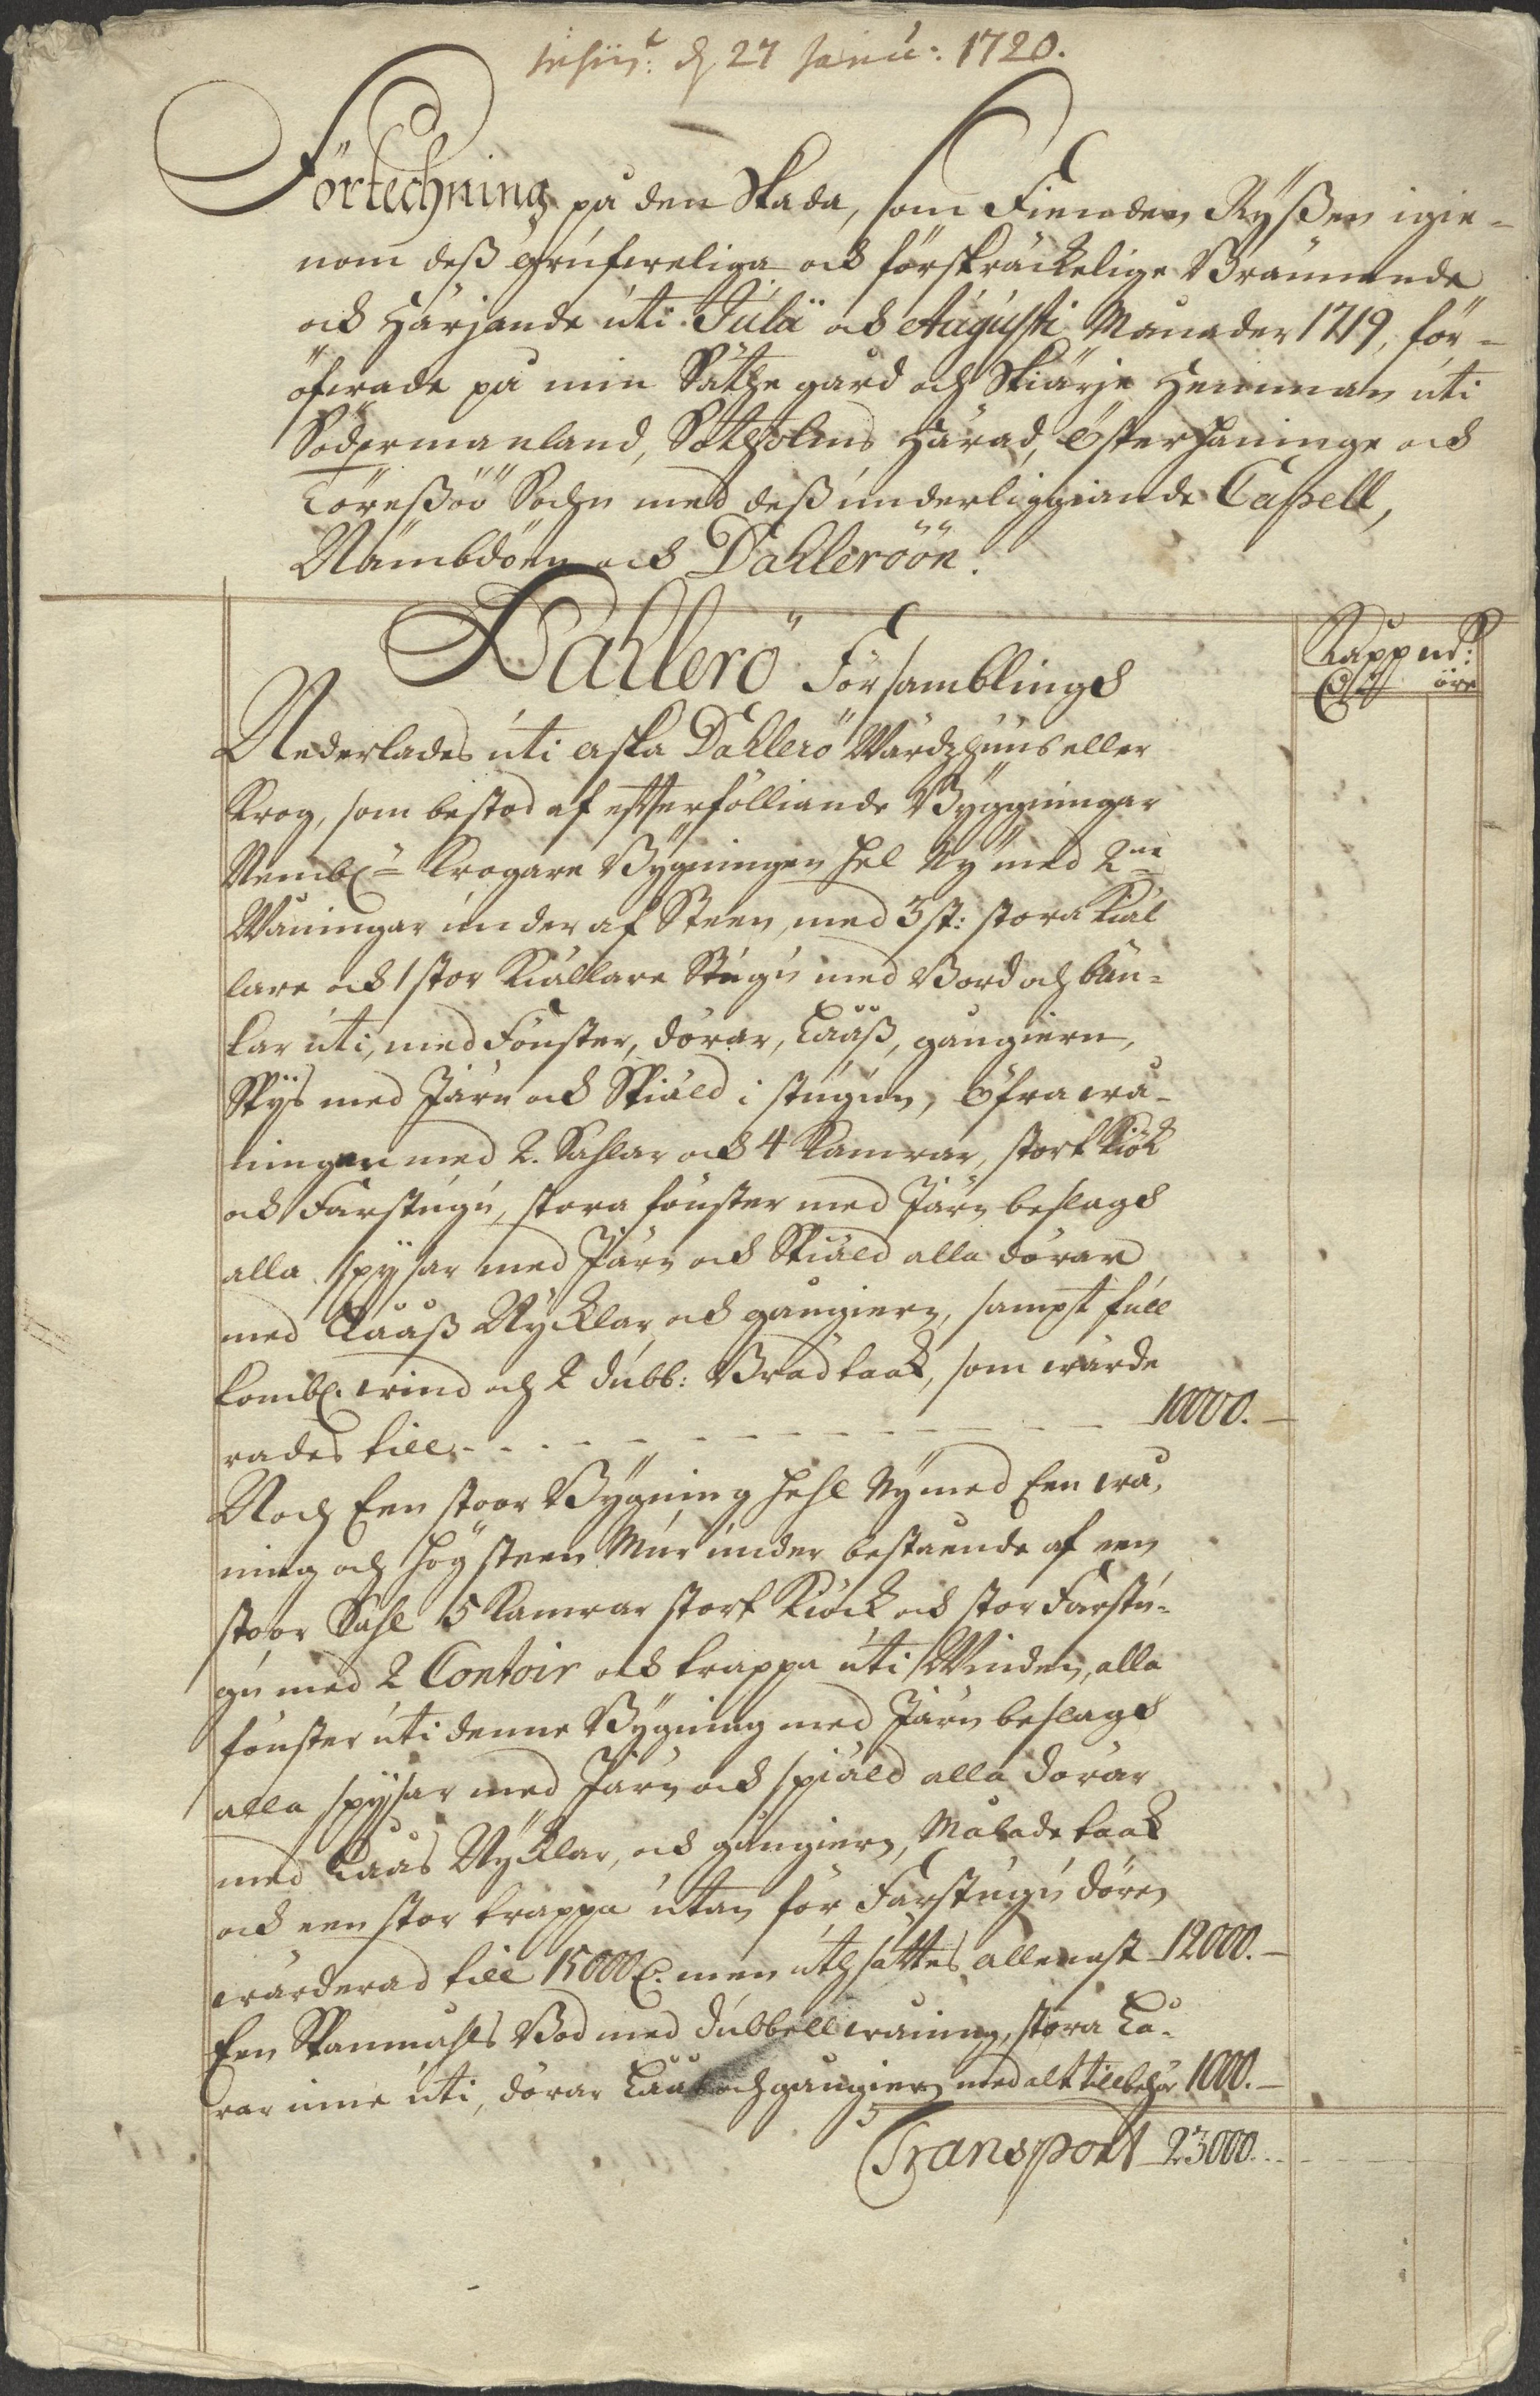 d 27 Janu: 1720.
Förtechning på den Skada, som Fienden Ryßen igie-
nom deß grufweliga och förskräckelige Brännande
och Härjande uti Julii och Augusti Månader 1719, för-
öfwade på min Säthegård och Skiärje Hemman uti
Södermanland, Sotholms Härad, Österhaninge och
Töreßöö Sochn med deß underliggiande Capell,
Nämbdöen och Dahleröön.
Dahlerö Församblings
Kappmt:
öre
Nederlades uti aska Dahlerö Wärdzhuus eller
Krog, som bestod af effterfölliande Byggningar
Nembl: Krogare Bygningen hel Ny med 2ne
Wåningar under af Steen, med 3 st: stora Kiäl
lare och 1 stor Kiällare Stugu med Bord och bän-
kar uti, med Fönster, dörar, Låås, gångiern,
Spijs med Järn och Spiäld i stugun, Öfra wå-
ningen med 2. Sahlar och 4 Kamrar, stort Kiök
och Farstugu, stora fönster med Järn beslags
alla spijsar med Järn och Spiäld alla dörar
med Lååß Nycklar och gångiern, sampt full
kombl. wind och 2 dubb: Brädtaak, som wärde
rades till - - - - - - - - - - 10000. -
Noch Een stoor Bygning hehl Ny med Een wå-
ning och hög steen Mur under bestående af een
stoor Sahl 5 Kamrar stort Kiöck och stor Farstu-
gu med 2 Contoir och trappa uti Winden, alla
fönster uti denne Bygning med Järn beslags
alla spijsar med Järn och spiäld alla dörar
med Låås Nycklar, och gångiern, Målade taak
och een stor trappa utan för Farstugu dören
wärderad till 15000 men uthsättes allenast 12000. -
Een Spanmåhls Bod med dubbell wåning, stora Lå-
rar inne uti, dörar Låås och gångiern med alt tillbehör 1000. -
Transport 23000. -